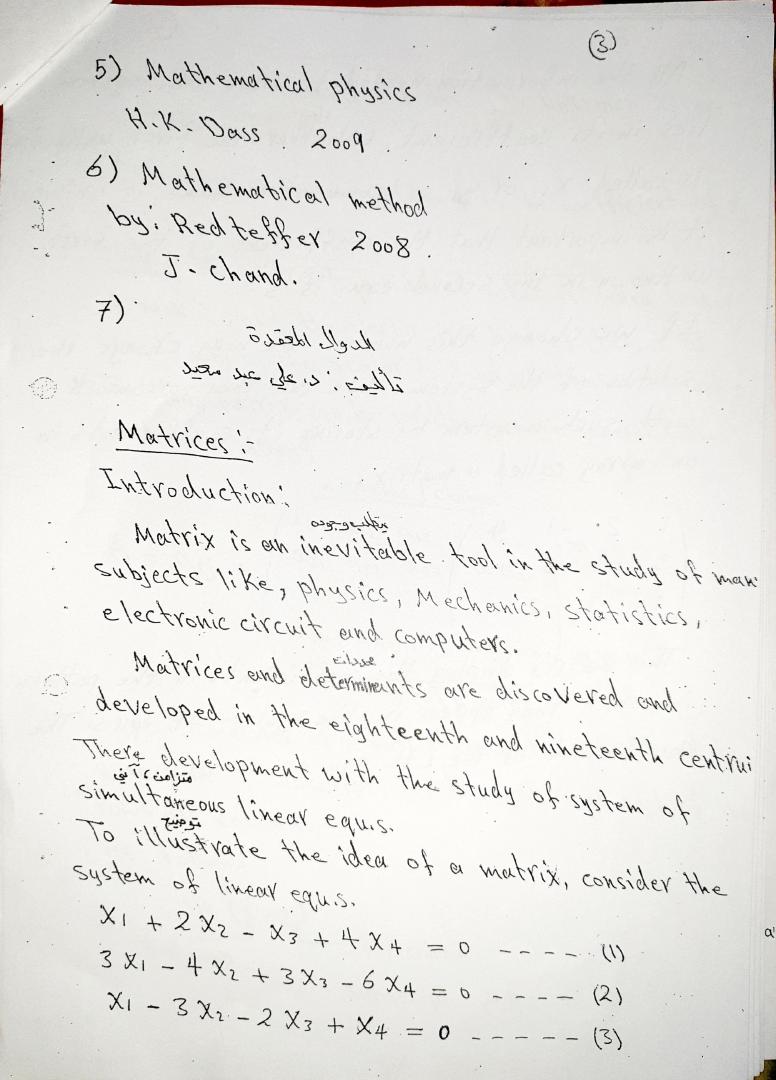 (3)
5) Mathematical physics
H.K. Dass 2009.
6) Mathematical method
by: Redteffer 2008.
J. chand.
7)
الدوال المعقدة
تأليف: د. علي عبد سعيد
Matrices :-
Introduction:
يتطلب وجوده
Matrix is an inevitable tool in the study of man
subjects like, physics, Mechanics, statistics,
electronic circuit and computers.
محددات
Matrices and determinants are discovered and
developed in the eighteenth and nineteenth centrui
There development with the study of system of
متزامن، آني
simultaneous linear equ.s.
توضيح
To illustrate the idea of a matrix, consider the
system of linear equ.s.
X1 + 2X2 - X3 + 4X4 = 0 ---- (1)
3X1 - 4X2 + 3X3 - 6X4 = 0 ---- (2)
X1 - 3X2 - 2X3 + X4 = 0 ----- (3)